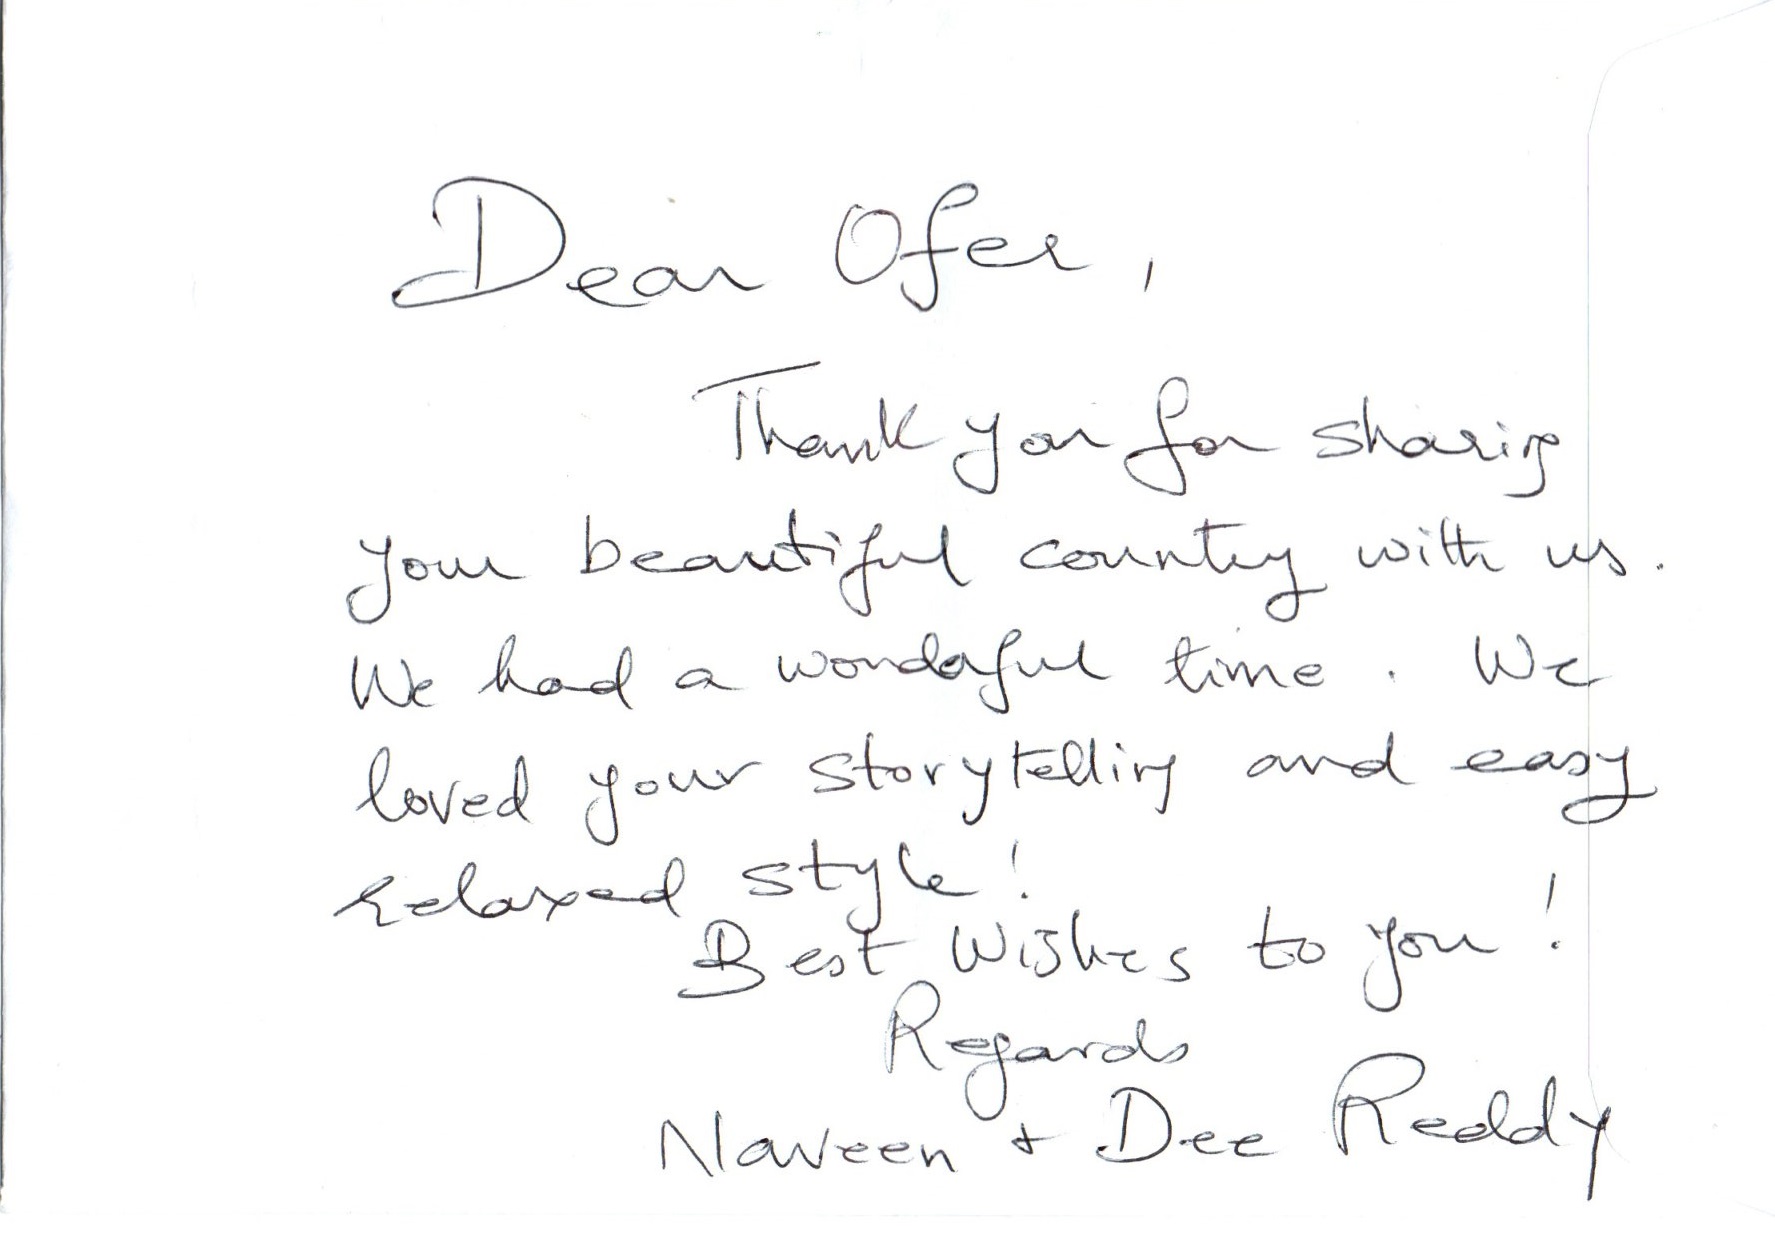 Dear Ofer,
Thank you for sharing
your beautiful country with us.
We had a wonderful time. We
loved your storytelling and easy
relaxed style!
Best Wishes to you!
Regards
Naveen + Dee Reddy